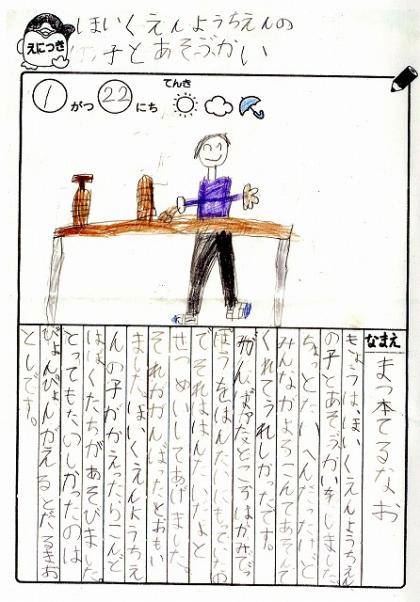 ほいくえんようちえんの
子とあそぶかい
えにっき
てんき
1がつ22にち
なまえ
まつ本てるなお
きょうは、ほいくえんようちえん
の子とあそぶかいをしました。
ちょっとたいへんだったけど
みんながよろこんであそんで
くれてうれしかったです。
がんばったところは
ぼうをはんたいにもっていたの
でそれははんたいだよと
せつめいしてあげました。
それががんばったとおもい
ました。ほいくえんようちえ
んの子がかえったらこんど
はぼくたちがあそびました。
とってもたのしかったのは
ぴょんぴょんがえるとだるまお
としです。